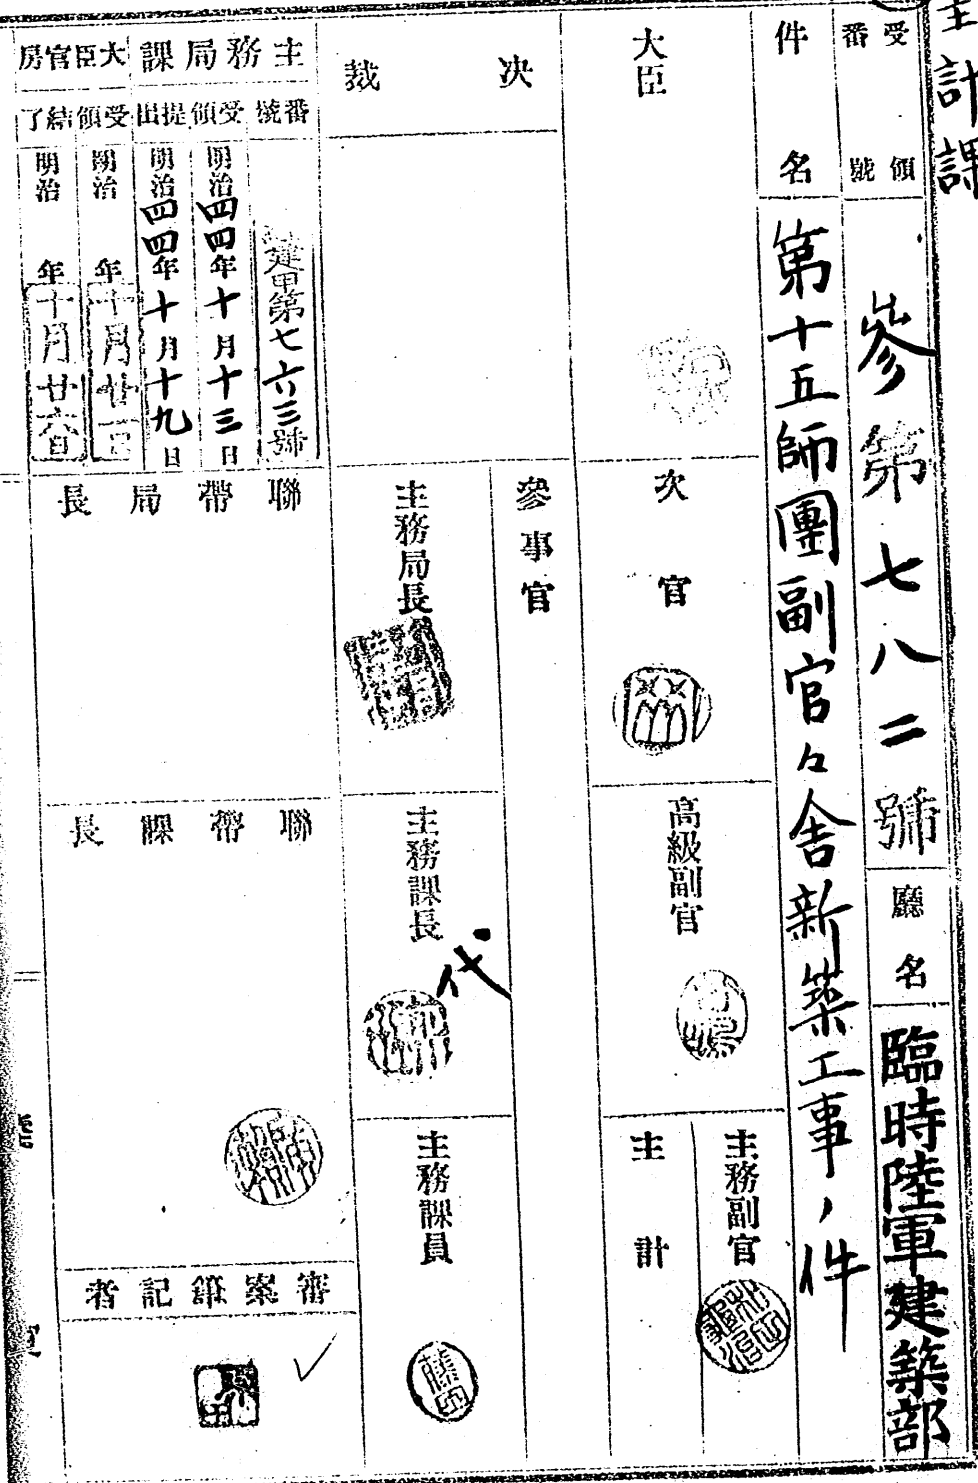 主計課
受領番號
參第七八二號
廳名
臨時陸軍建築部
件名
第十五師團副官々舎新築工事ノ件
大臣
次官
高級副官
主務副官
主計
决裁
參事官
主務局長
主務課長
代
主務課員
主務局課
番號
建甲第七六三號
受領
明治四四年十月十三日
提出
明治四四年十月十九日
大臣官房
受領
明治 年十月廿一日
結了
明治 年十月廿六日
聯帶局長
聯帶課長
審案筆記者